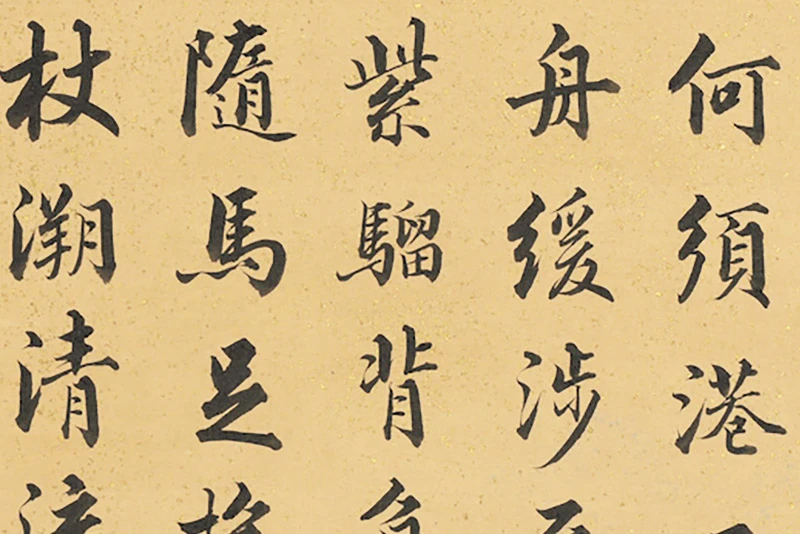 何須港
舟緩涉
紫騮背
隨馬足
杖溯清